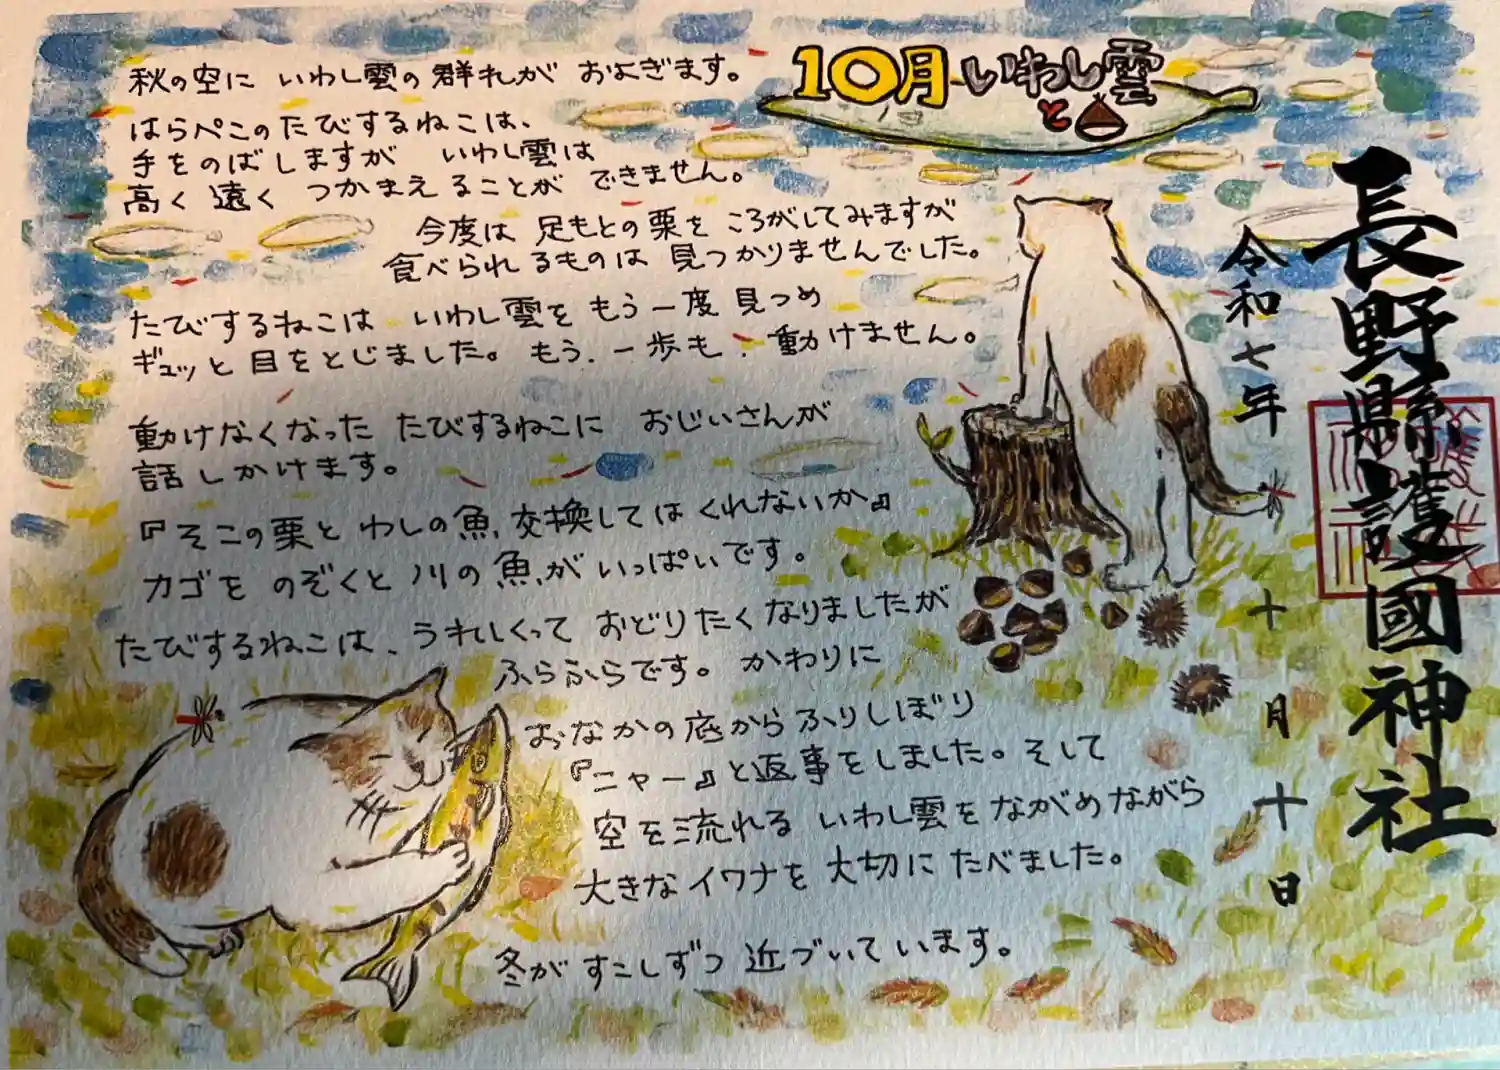 10月 いわし雲
と
秋の空に いわし雲の群れが およぎます。
はらぺこのたびするねこは、
手をのばしますが いわし雲は
高く遠く つかまえることが できません。
今度は 足もとの栗を ころがしてみますが
食べられるものは 見つかりませんでした。
たびするねこは いわし雲を もう一度 見つめ
ギュッと 目をとじました。もう、一歩も、動けません。
動けなくなった たびするねこに おじいさんが
話しかけます。
『そこの栗と わしの魚、交換してはくれないか』
カゴを のぞくと 川の魚が いっぱいです。
たびするねこは、うれしくって おどりたくなりましたが
ふらふらです。かわりに
おなかの底から ふりしぼり
『ニャー』と返事をしました。そして
空を流れる いわし雲を ながめながら
大きなイワナを 大切に たべました。
冬が すこしずつ 近づいて います。
長野縣護國神社
令和七年 十月十日